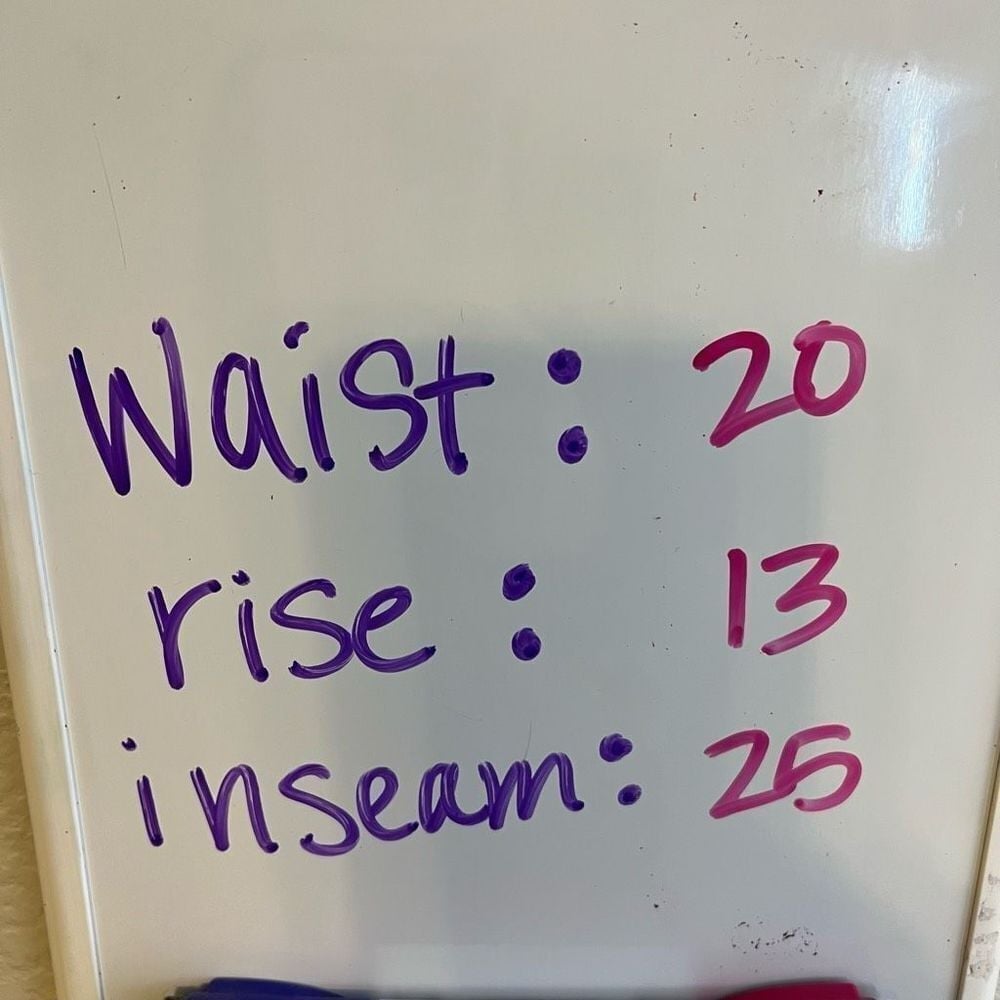 Waist: 20
rise: 13
inseam: 25